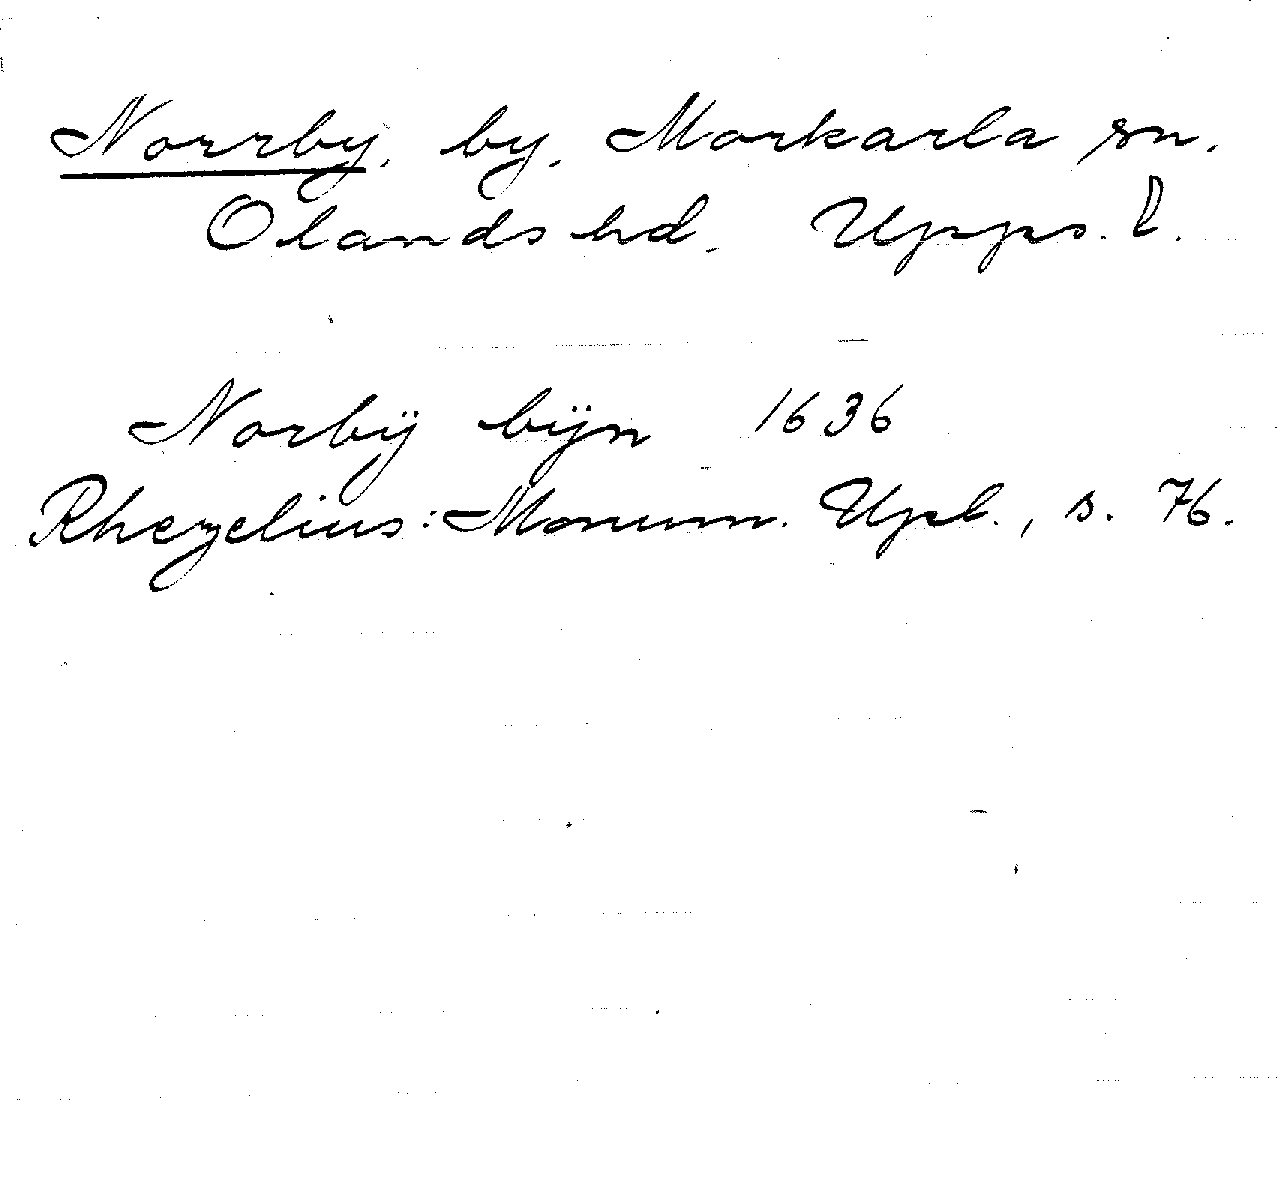 Norrby, by, Morkarla sn.
Olands hd. Upps. l.
Norbÿ bÿn 1636
Rhezelius: Monum. Upl., s. 76.